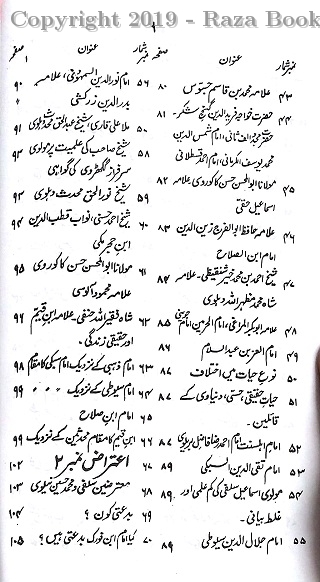 Copyright 2019 - Raza Book
۸
نمبر شمار عنوان صفحہ
۴۳ علامہ محمد بن قاسم جسوس ۸۰
۴۴ حضرت خواجہ فرید الدین گنج شکر۔ ۸۱
حضرت مجدد الف ثانی، امام شمس الدین
محمد یوسف الکرمانی، امام احمد قسطلانی
۴۵ مولانا ابو الحسن حسن کاکوروی علامہ ۸۲
اسماعیل حقی
۴۶ علامہ حافظ ابو الفرج زین الدین ۸۳
امام ابن الصلاح
۴۷ شیخ احمد بن محمد خیر شنقیطی۔ علامہ ۸۴
شاہ محمد مظہر اللہ دہلوی
۴۸ علامہ ابوبکر المراغی، امام الحرمین امام جوینی ۸۵
۴۹ امام العز بن عبد السلام ۸۶
۵۰ نوع حیات میں اختلاف ۸۷
۵۱ حیات حقیقی، حسی، دنیاوی کے ۸۷
قائلین۔
۵۲ امام اہلسنت امام احمد رضا فاضل بریلوی ۸۷
۵۳ امام تقی الدین السبکی ۸۹
۵۴ مولوی اسماعیل سلفی کی کم علمی اور ۸۹
غلط بیانی۔
۵۵ امام جلال الدین سیوطی ۸۹
نمبر شمار عنوان صفحہ
۵۶ امام نور الدین السمہودی، علامہ ۹۰
بدر الدین زرکشی
۵۷ ملا علی قاری، شیخ عبد الحق محدث دہلوی ۹۱
۵۸ شیخ صاحب کی علمیت پر مولوی ۹۳
سرفراز گکھڑوی کی گواہی
۵۹ شیخ نور الحق محدث دہلوی ۹۳
۶۰ شیخ احمد حسنی، نواب قطب الدین ۹۴
ابن حجر مکی
۶۱ مولانا ابو الحسن حسن کاکوروی ۹۵
علامہ محمود آلوسی
۶۲ شاہ فقیر اللہ حنفی۔ علامہ ابن قیم ۹۶
اور حقیقی زندگی۔
۶۳ امام ذہبی کے نزدیک امام سبکی کا مقام ۹۸
۶۴ امام سیوطی کے نزدیک ۰ ۰ ۰ ۹۹
۶۵ امام ابن صلاح
۶۶ ابن قیم کا مقام محدثین کے نزدیک ۹۹
۶۷ اعتراض نمبر ۲ ۱۰۲
۶۸ معترضین سلفی و محمد حسین نیلوی ۱۰۳
۶۹ بدعتی کون؟ ۱۰۴
۷۰ کیا امام ابن فورک بدعتی ہیں؟ ۱۰۵